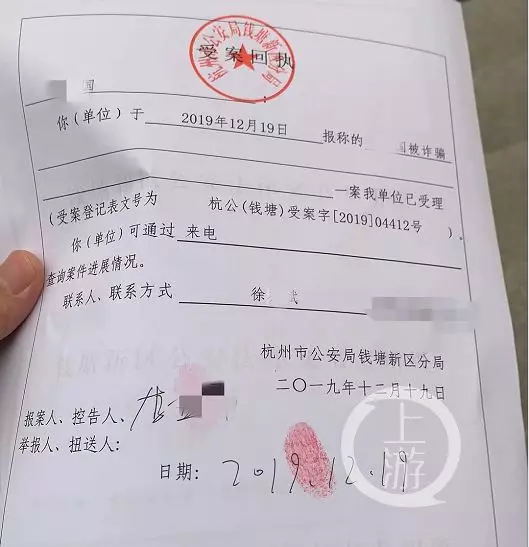 杭州市公安局钱塘新区分局
受案回执
国
：
你(单位)于 2019年12月19日 报称的 国被诈骗
一案我单位已受理
(受案登记表文号为 杭公(钱塘)受案字[2019]04412号 )。
你(单位)可通过 来电
查询案件进展情况。
联系人、联系方式 徐
杭州市公安局钱塘新区分局
二〇一九年十二月十九日
报案人、控告人、
举报人、扭送人：
日期： 2019.12.19
上游